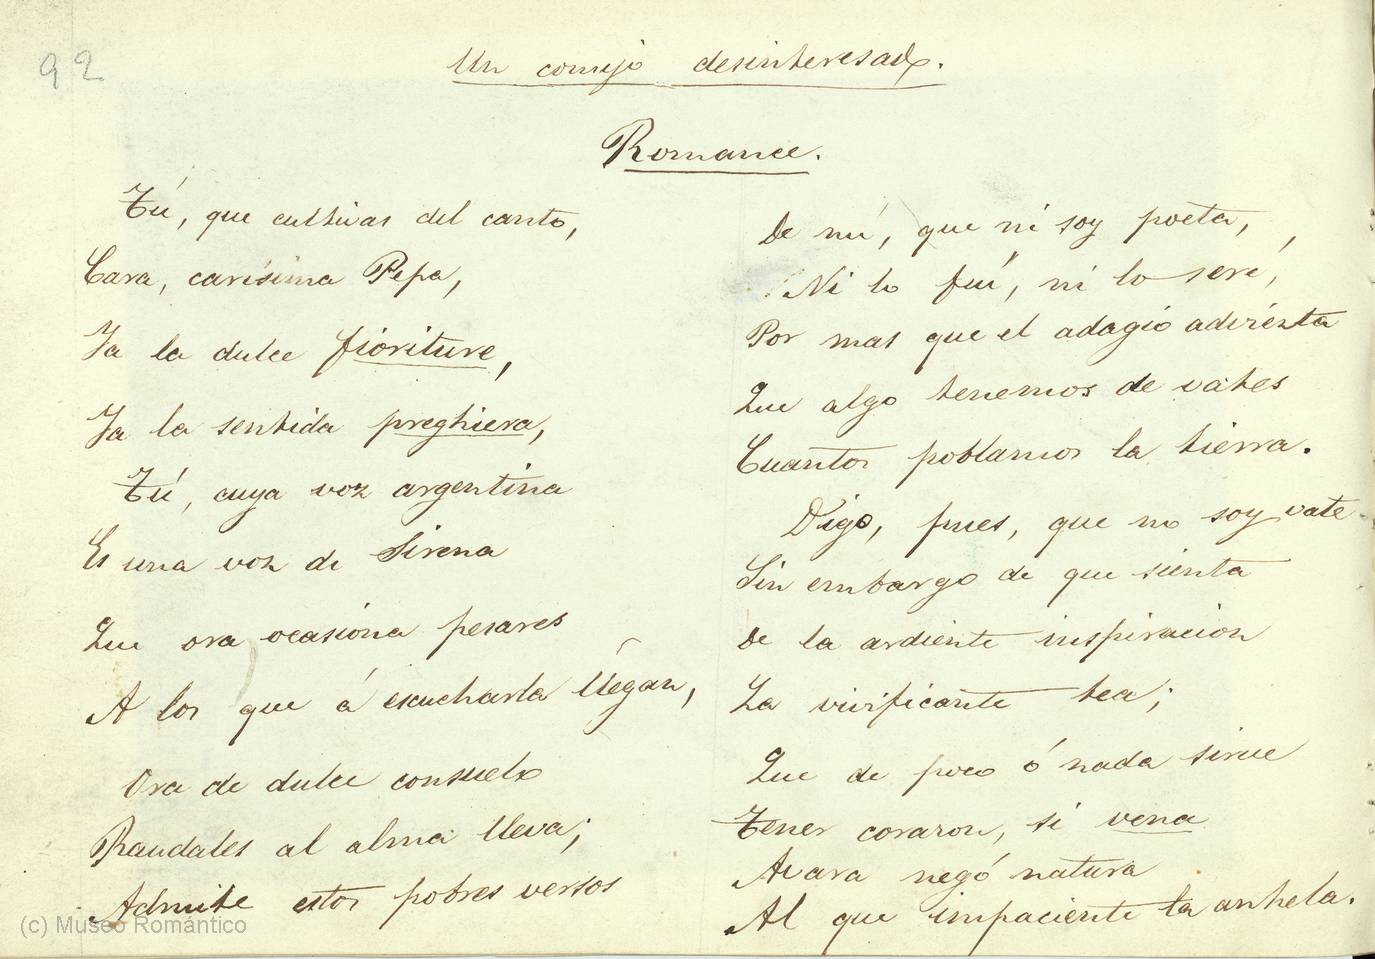 92
Un consejo desinteresado.
Romance.
Tú, que cultivas del canto,
Cara, carísima Pepa,
Ya la dulce fioriture,
Ya la sentida preghiera,
Tú, cuya voz argentina
Es una voz de Sirena
Que ora ocasiona pesares
A los que á escucharla llegan,
Ora de dulce consuelo
Raudales al alma lleva;
Admite estos pobres versos
De mí, que ni soy poeta,
Ni lo fuí, ni lo seré,
Por mas que el adagio advierta
Que algo tenemos de vates
Cuantos poblamos la tierra.
Digo, pues, que no soy vate
Sin embargo de que sienta
De la ardiente inspiracion
La vivificante tea;
Que de poco ó nada sirve
Tener corazon, si vena
Avara negó natura
Al que impaciente la anhela.
(c) Museo Romántico